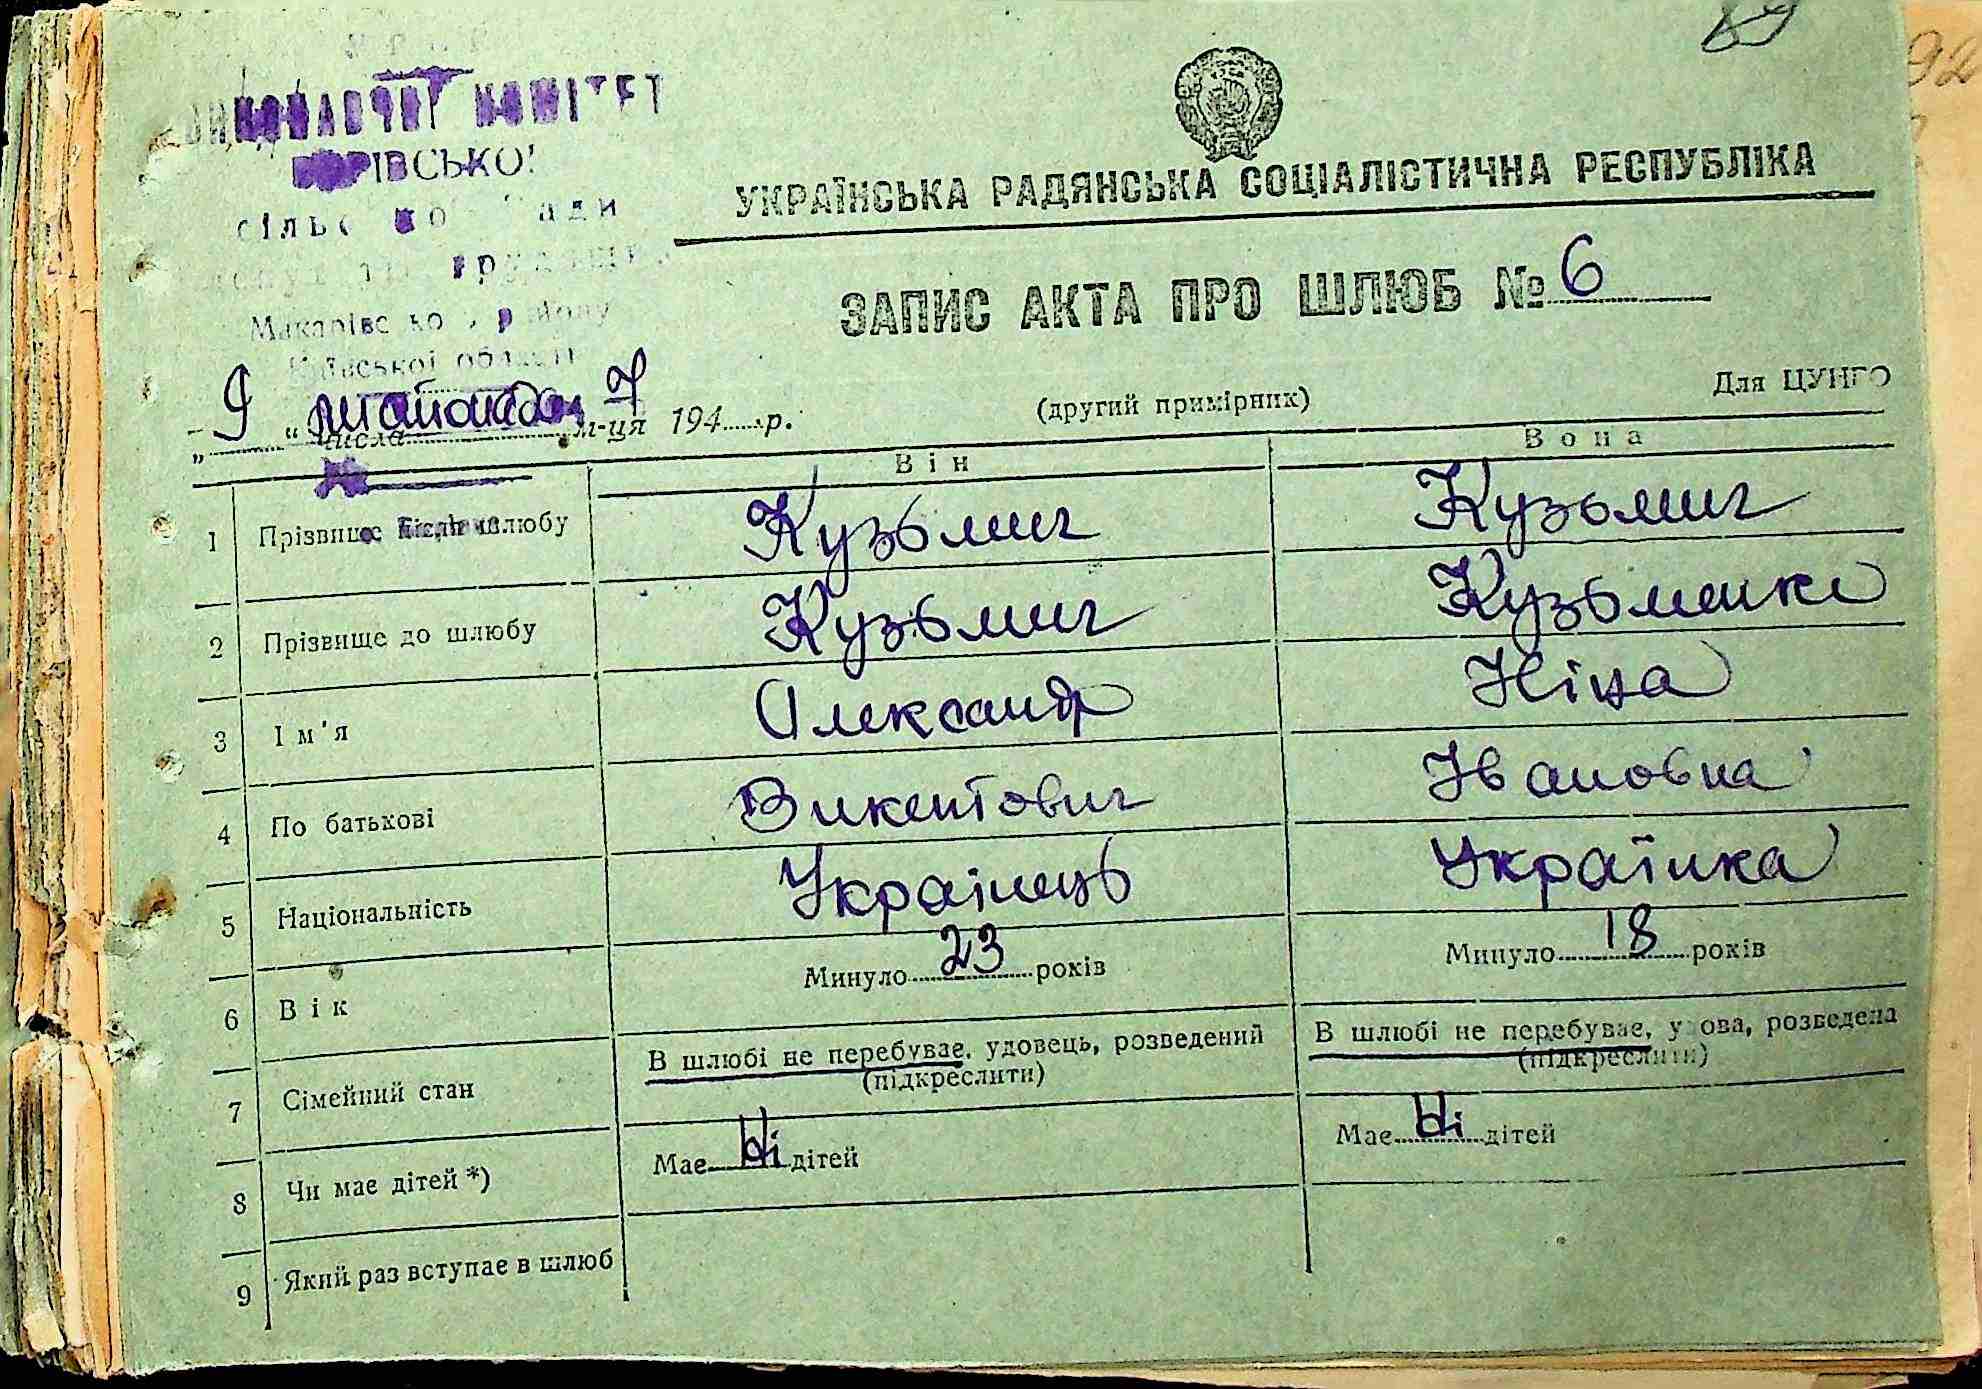 69
92
ВИКОНАВЧИЙ КОМІТЕТ
сільської Ради
Макарівського району
Київської області
УКРАЇНСЬКА РАДЯНСЬКА СОЦІАЛІСТИЧНА РЕСПУБЛІКА
ЗАПИС АКТА ПРО ШЛЮБ № 6
„ 9 “ числа м-ця 194 7 р.
(другий примірник)
Для ЦУНГО
Він Вона
1 Прізвище після шлюбу Кузьмич Кузьмич
2 Прізвище до шлюбу Кузьмич Кузьменко
3 Ім'я Олександр Ніна
4 По батькові Викентович Івановна
5 Національність Українець Українка
6 Вік Минуло 23 років Минуло 18 років
7 Сімейний стан В шлюбі не перебуває, удовець, розведений В шлюбі не перебуває, удова, розведена
(підкреслити) (підкреслити)
8 Чи має дітей *) Має Ні дітей Має Ні дітей
9 Який раз вступає в шлюб